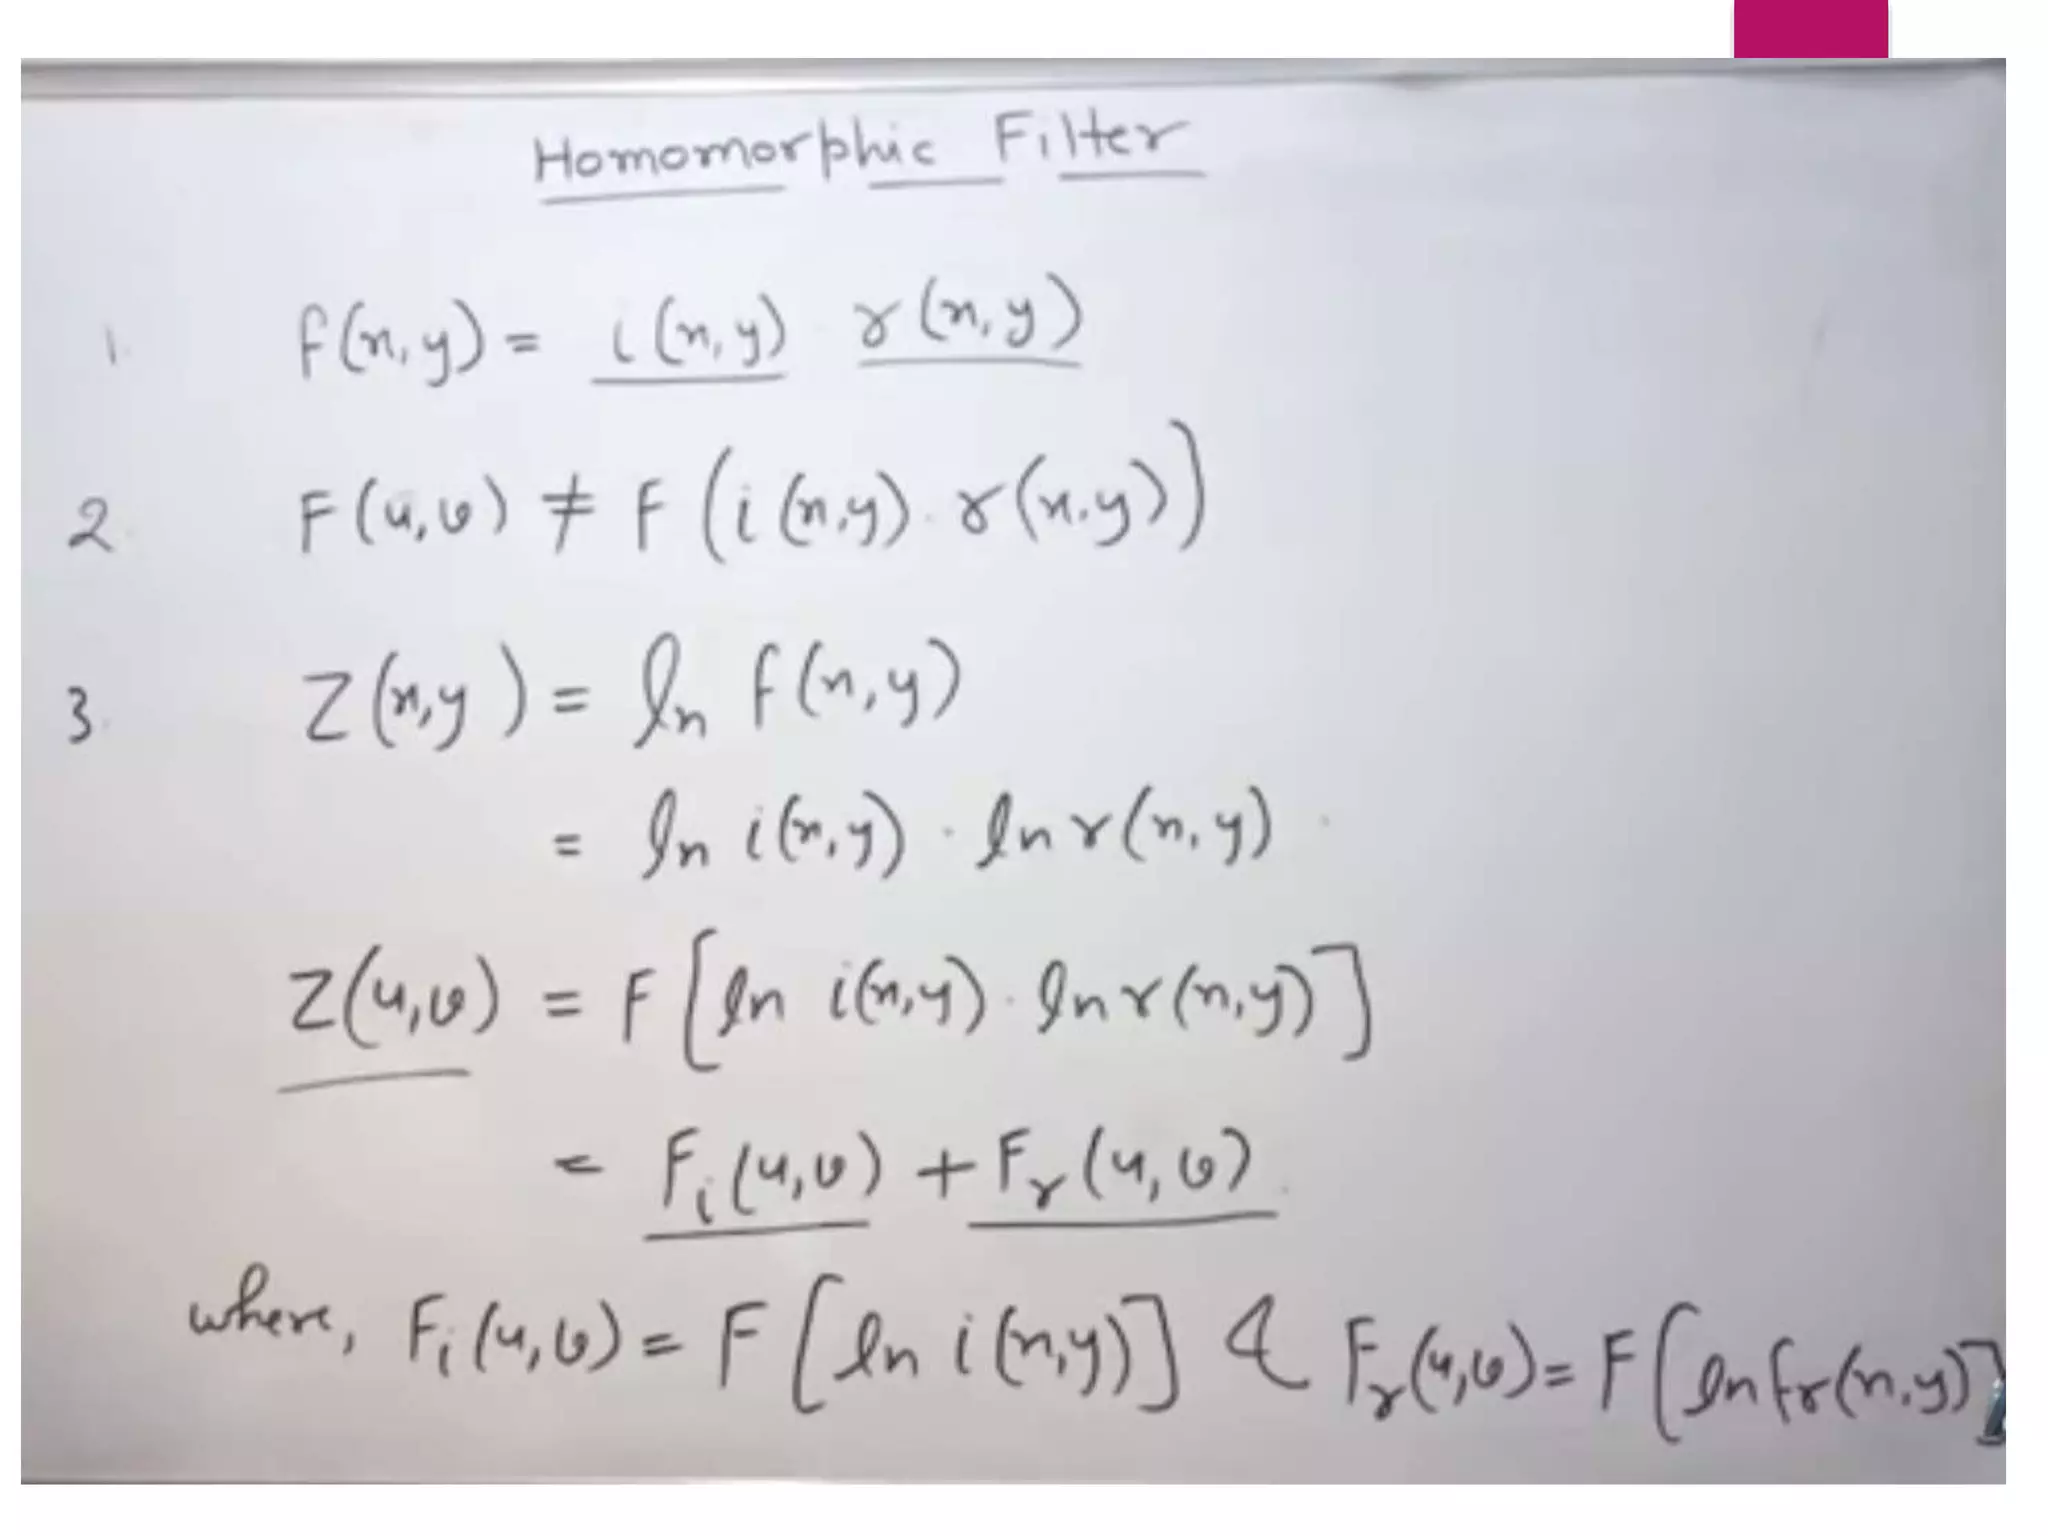 Homomorphic Filter
1. f(x,y) = i(x,y) . r(x,y)
2. F(u,v) ≠ F(i(x,y) . r(x,y))
3. Z(x,y) = ln f(x,y)
= ln i(x,y) . ln r(x,y) .
Z(u,v) = F[ln i(x,y) . ln r(x,y)]
= Fi(u,v) + Fr(u,v).
where, Fi(u,v) = F[ln i(x,y)] & Fr(u,v) = F[ln fr(x,y)]